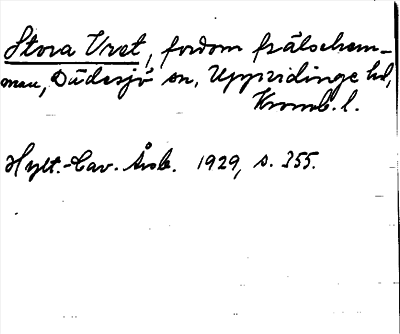 Stora Vret, fordom frälsehem-
man, Dädesjö sn, Uppvidinge hd,
Kronob. l.
Hylt.-Cav. Årsb. 1929, s. 355.